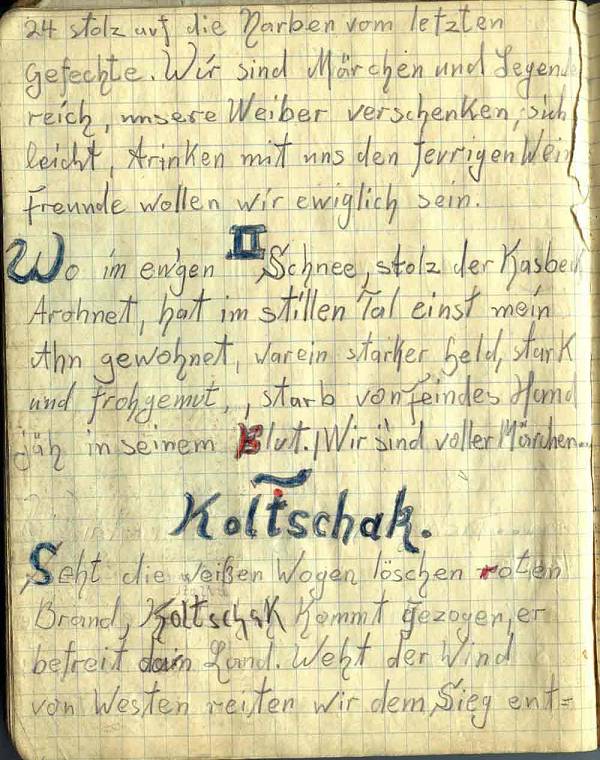 24 stolz auf die Narben vom letzten
Gefechte. Wir sind Märchen und Legende
reich, unsere Weiber verschenken, sich
leicht, trinken mit uns den fevrigen Wein
Freunde wollen wir ewiglich sein.
II
Wo im ew'gen Schnee, stolz der Kasbek
trohnet, hat im stillen Tal einst mein
Ahn gewohnet, war ein starker held, stark
und frohgemut, , starb von feindes Hand
jäh in seinem Blut. | Wir sind voller Märchen...
Koltschak.
Seht die weißen Wogen löschen roten
Brand, Koltschak kommt gezogen, er
befreit dein Land. Weht der Wind
von Westen reiten wir dem Sieg ent=